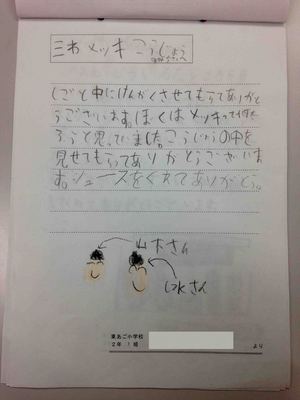 三わ メッキ こうじょう
みなさんへ
しごと中にけんがくさせてもらってありがと
うございます。ぼくはメッキって何だ
ろうと思っていました。こうじょうの中を
見せてもらってありがとうございま
す。ジュースをくれてありがとう。
山木さん
さん
東あご小学校
2年 1組
24